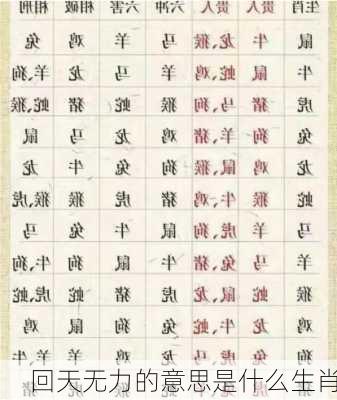 生肖 贵人 贵人 六冲 六害 相破 相刑
鼠 牛 龙、猴 马 羊 鸡 兔
牛 鼠 蛇、鸡 羊 马 龙 羊、狗
虎 猪 马、狗 猴 蛇 猪 蛇、猴
兔 狗 羊、猪 鸡 龙 马 鼠
龙 鸡 鼠、猴 狗 兔 牛 龙
蛇 猴 牛、鸡 猪 虎 猴 猴、虎
马 羊 虎、狗 鼠 牛 兔 马
羊 马 兔、猪 牛 鼠 狗 牛、狗
猴 蛇 鼠、龙 虎 猪 蛇 虎、蛇
鸡 龙 牛、蛇 兔 狗 鼠 鸡
狗 兔 虎、马 龙 鸡 羊 牛、羊
回天无力的意思是什么生肖